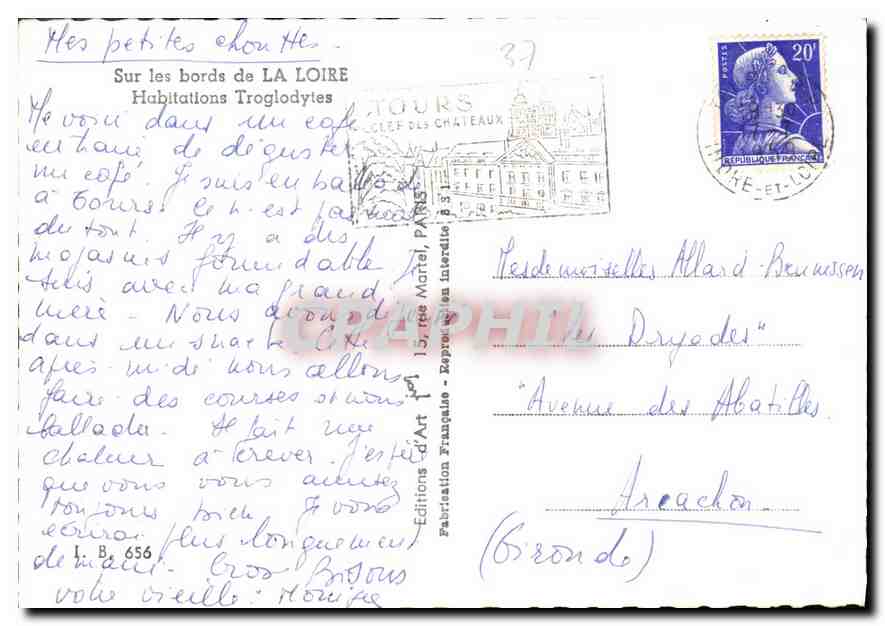 Mes petites chouttes.
Sur les bords de LA LOIRE
Habitations Troglodytes
Me voici dans un café
en train de déguster
un café. Je suis en ballade
à Tours. Ce n'est pas mal
du tout. Il y a des
magasins formidables. Je
suis avec ma grand
mère - Nous avons déjeuné
dans un snack. Cet
après-midi nous allons
faire des courses et nous
ballader. Il fait une
chaleur à crever. J'espère
que vous vous amusez
toujours bien. Je vous
écrirai plus longuement
demain. Gros Bisous
votre vieille: Monique
I. B. 656
37
TOURS
CLEF DES CHATEAUX
Editions d'Art 15, rue Martel, PARIS
Fabrication Française - Reproduction interdite
POSTES
20F
REPUBLIQUE FRANÇAISE
INDRE-ET-LOIRE
Mesdemoiselles Allard-Brunissen
"Les Dryades"
"Avenue des Abatilles
Arcachon
(Gironde)
CPAPHIL